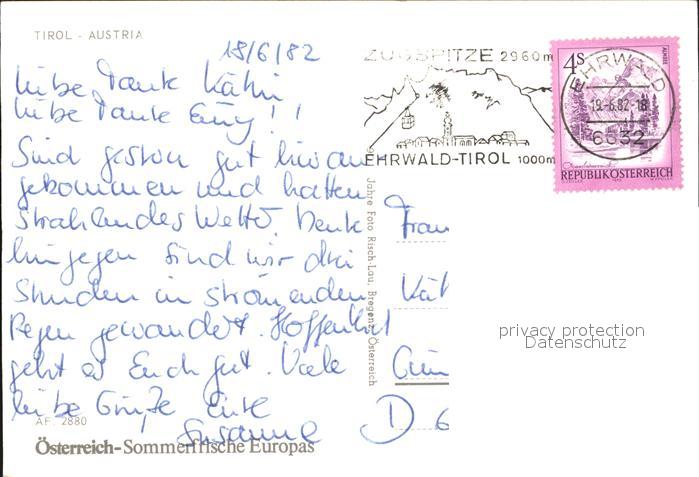 TIROL - AUSTRIA
18/6/82
Liebe Tante Käthi
liebe Tante Emy!!
Sind gestern gut hier an
gekommen und hatten
strahlendes Wetter. Heute
hingegen sind wir drei
Stunden in strömenden
Regen gewandert. Hoffentlich
geht es Euch gut. Viele
liebe Grüße Eure
Susanne
AF. 2880
Österreich-Sommerfrische Europas
Jahre Foto Risch-Lau, Bregenz, Österreich
ZUGSPITZE 2960m
EHRWALD-TIROL 1000m
4S
ALMSEE
REPUBLIK ÖSTERREICH
EHRWALD
19.-6.82-18
6632
Frau
Kät
D 6
privacy protection
Datenschutz